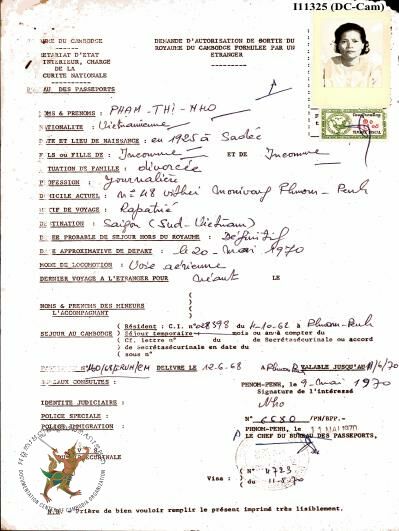 I11325 (DC-Cam)
UME DU CAMBODGE
DEMANDE D'AUTORISATION DE SORTIE DU
ETARIAT D'ETAT
ROYAUME DU CAMBODGE FORMULEE PAR UN
INTERIEUR, CHARGE
ETRANGER
DE LA
CURITE NATIONALE
AU DES PASSEPORTS
OMS & PRENOMS : PHAM-THI-NHO
NATIONALITE : Vietnamienne
DATE ET LIEU DE NAISSANCE : en 1925 à Sadec
FILS ou FILLE DE : Inconnue ET DE Inconnue
SITUATION DE FAMILLE : divorcée
PROFESSION : Journalière
DOMICILE ACTUEL : n° 48 vithei Monivong Phnom-Penh
MOTIF DE VOYAGE : Rapatrié
DESTINATION : Saigon (Sud-Vietnam)
DUREE PROBABLE DE SEJOUR HORS DU ROYAUME : Définitif
DATE APPROXIMATIVE DE DEPART : le 20 Mai 1970
MODE DE LOCOMOTION : Voie aérienne
DERNIER VOYAGE A L'ETRANGER POUR néant LE
NOMS & PRENOMS DES MINEURS
L'ACCOMPAGNANT
SEJOUR AU CAMBODGE
Résident : C.I. n° 028398 du 4-10-62 à Phnom-Penh
Séjour temporaire mois ou an à compter du
Cf. lettre n° du de Secrétasécuriale ou accord
de secrétasécuriale en date du
sous n°
DELIVRE LE 12.6.68 à VALABLE JUSQU'AU
CONSULTES :
PHNOM-PENH, le 9-mai 1970
Signature de l'intéressé
Nho
IDENTITE JUDICIAIRE :
POLICE SPECIALE :
N° 6680 /PN/BPP.-
POLICE IMMIGRATION :
PHNOM-PENH, le 11 MAI 1970
LE CHEF DU BUREAU DES PASSEPORTS,
N° 4723
Visa : du 11-5-70
DOCUMENTATION CENTER OF CAMBODIA ORGANIZATION
N.B. Prière de bien vouloir remplir le présent imprimé très lisiblement.